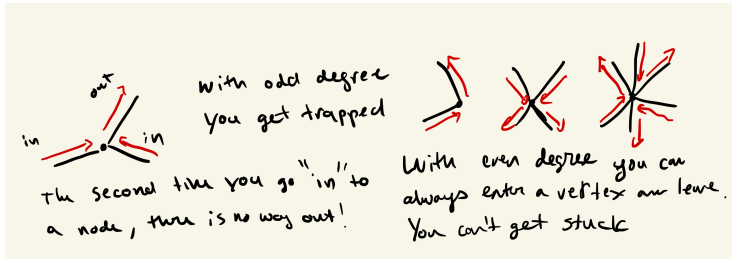 out
in
in
With odd degree
you get trapped
The second time you go "in" to
a node, there is no way out!
With even degree you can
always enter a vertex and leave.
You can't get stuck